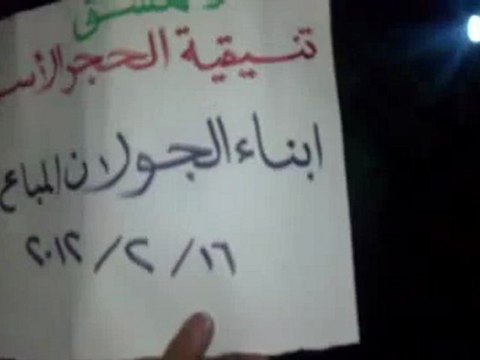 دمشق
تنسيقية الحجر الأسـ
ابناء الجولان المباع
١٦/٢/٢٠١٢